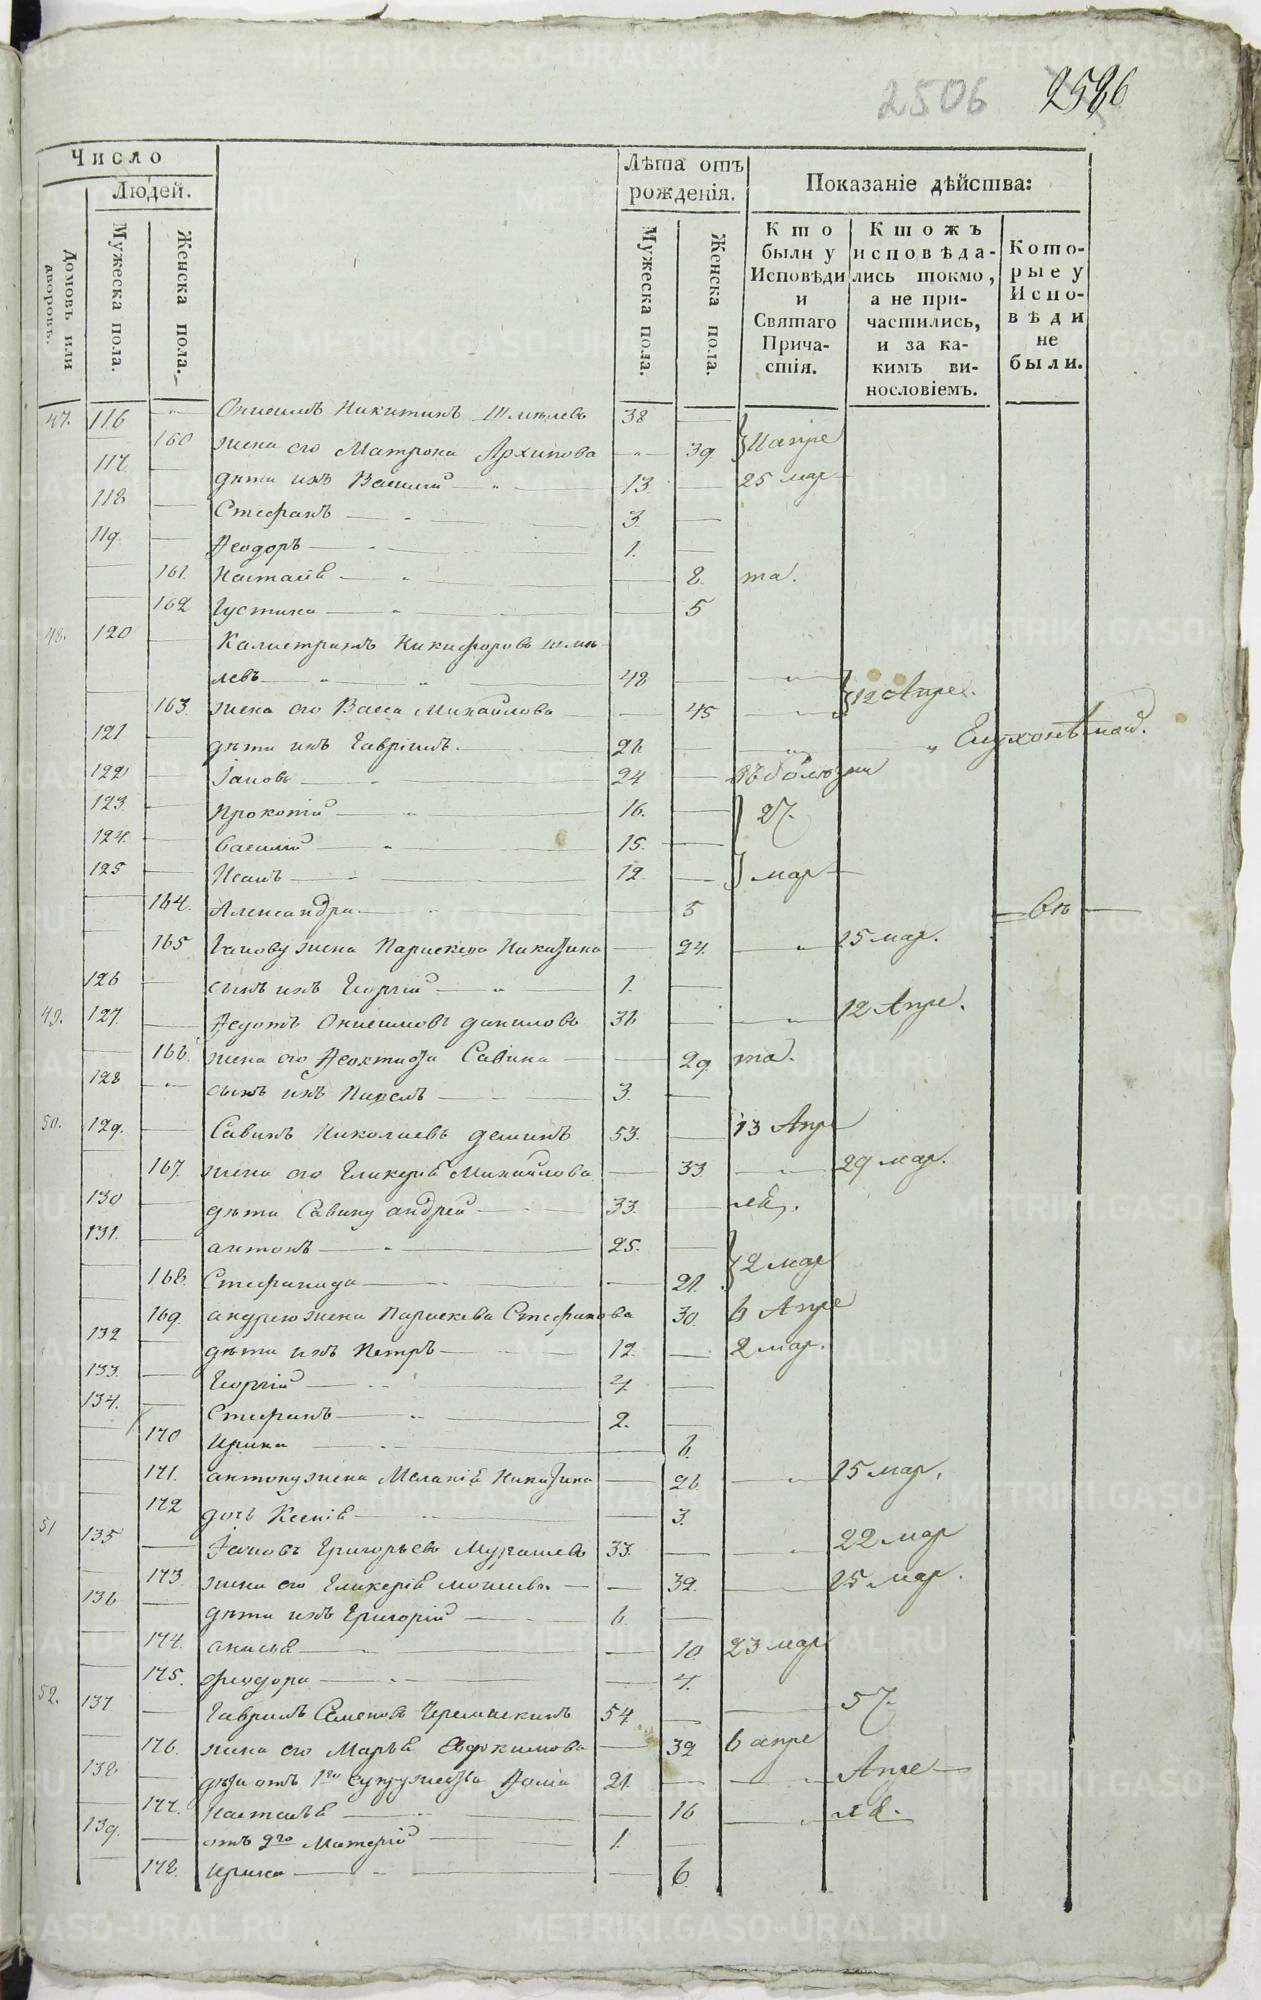 2506 2586
Число
Людей.
Домовъ или дворовъ.
Мужеска пола.
Женска пола.
Лѣта отъ рожденія.
Мужеска пола.
Женска пола.
Показаніе дѣйства:
Кто были у Исповѣди и Святаго Причастія.
Ктожъ исповѣдались токмо, а не причастились, и за какимъ винословіемъ.
Которые у Исповѣди не были.
47. 116 Онисимъ Никитинъ Шмелевъ 38
160 жена его Матрона Архипова 39 11 апре
117 дѣти ихъ Василий 13 25 мар
118 Стефанъ 3.
119. Ѳеодоръ 1.
161. Настасія 8. та.
162 Густина 5
48. 120 Калистратъ Никифоровъ шме
левъ 48
163. жена его Васса Михайлова 45 12 Апре.
121 дѣти ихъ Гавріилъ 26.
122 Іаковъ 24 въ болезни
123. Прокопій 16. 27.
124. Василий 15.
125 Исакъ 12. мар
164. Александра 5 въ
165 Іакову жена Параскева Никитина 24. 15 мар.
126 сынъ ихъ Георгій 1.
49. 127. Ѳедотъ Онисимовъ Даниловъ 36 12 Апре.
166. жена его Ѳеоктиста Савина 29 та.
128 сынъ ихъ Павелъ 3.
50. 129. Савинъ Николаевъ Деминъ 53. 13 Апре
167. жена его Гликерія Михайлова 33. 29 мар.
130 дѣти Савину Андрей 33.
131. антонъ 25. 2 мар
168. Стефанида 21.
169. андрею жена Параскева Стефанова 30. 6 Апре
132 дѣти ихъ Петръ 12. 2 мар.
133. Георгій 4.
134. Стефанъ 2.
170 Ирина 6.
171. антону жена Меланія Никитина 26. 15 мар.
172 дочь Ксенія 3.
51 135 Іаковъ Григорьевъ Мурашевъ 33. 22 мар
173. жена его Гликерія 39. 15 мар.
136 дѣти ихъ Григорій 6.
174. 10 23 мар
175. феодора 4.
52. 137 Гаврилъ Семеновъ Черемискинъ 54 57.
176. жена его Марья Евдокимова 39 6 апре
138. дѣти отъ 1го супружества 21. Апре
177. Настасья 16
139. отъ 2го 1.
178. Ирина 6.
METRIKI.GASO-URAL.RU